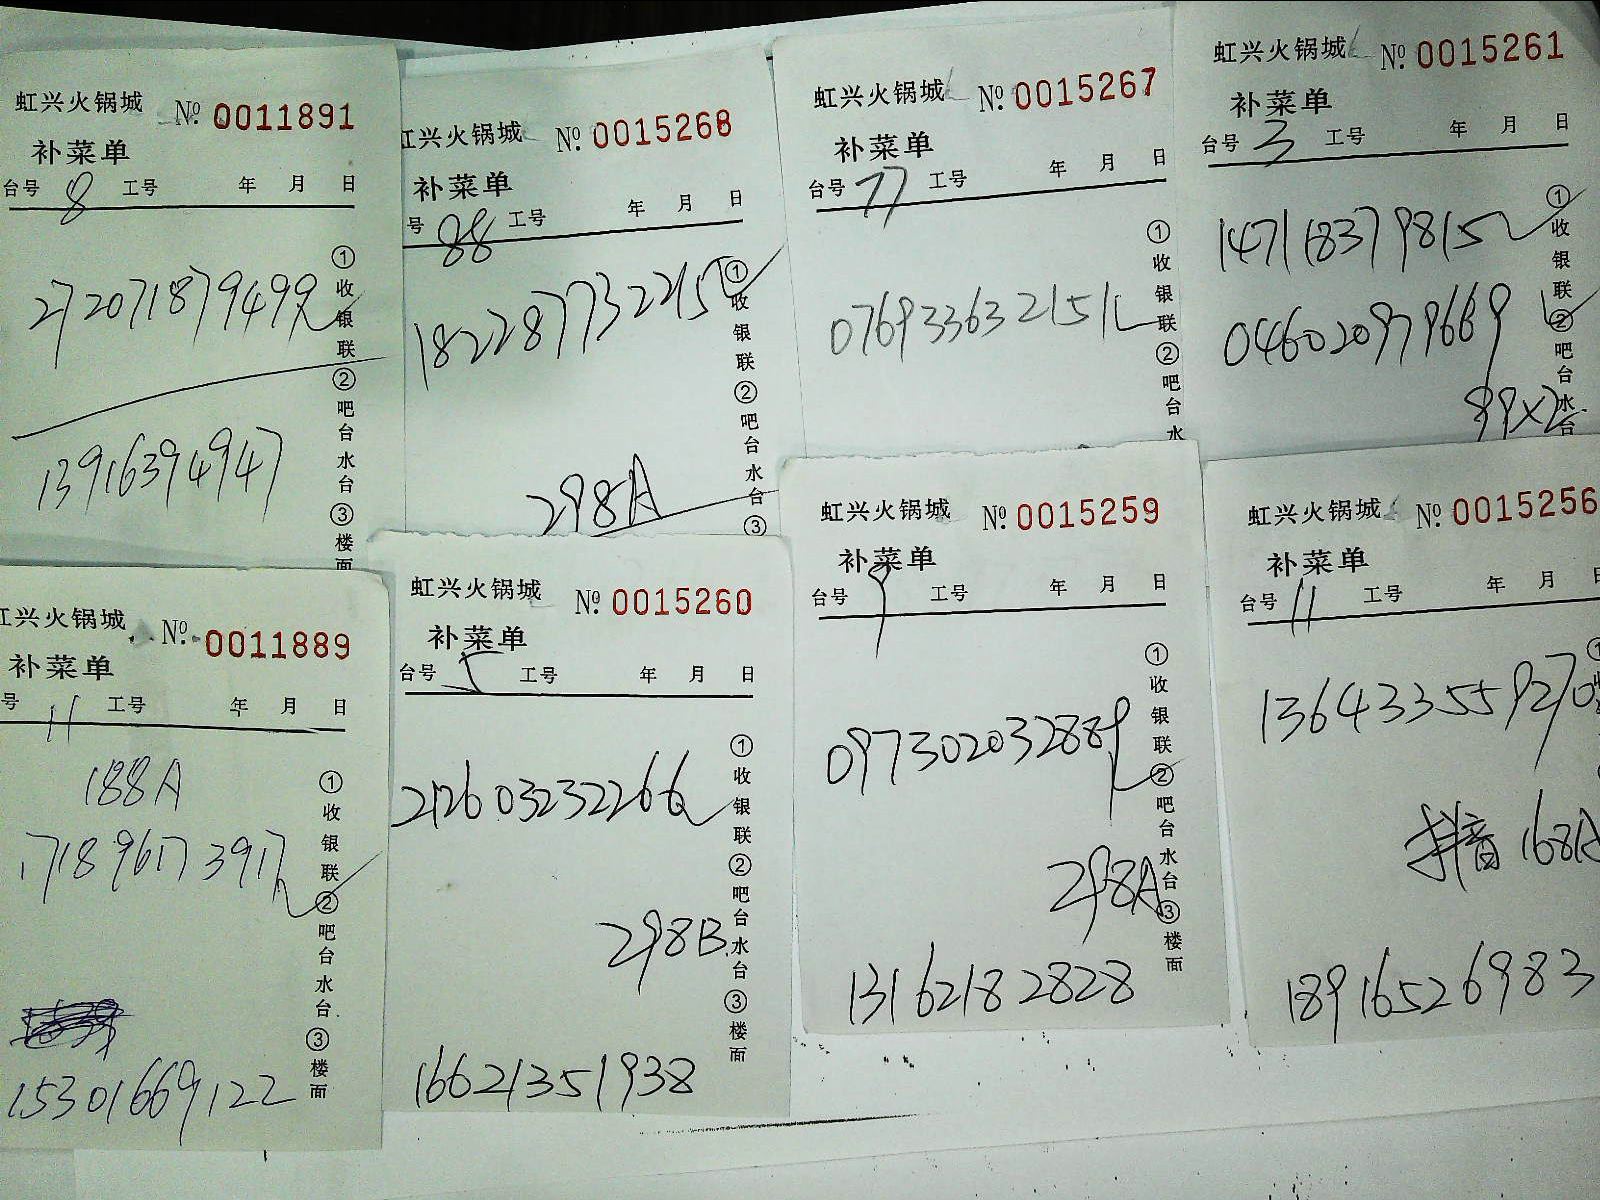 虹兴火锅城 No. 0011891
补菜单
台号 8 工号 年 月 日
272071879499
13916394947
①收银联②吧台水台③楼面
虹兴火锅城 No. 0015268
补菜单
号 88 工号 年 月 日
182287732215
298A
①收银联②吧台水台③
虹兴火锅城 No. 0015267
补菜单
台号 77 工号 年 月 日
076933632151
①收银联②吧台水
虹兴火锅城 No. 0015261
补菜单
台号 3 工号 年 月 日
147118379815
046020979669
99x2
①收银联②吧台水台
虹兴火锅城 No. 0011889
补菜单
号 11 工号 年 月 日
188A
171896173917
15301669122
①收银联②吧台水台③楼面
虹兴火锅城 No. 0015260
补菜单
台号 5 工号 年 月 日
212603232266
298B
16621351938
①收银联②吧台水台③楼面
虹兴火锅城 No. 0015259
补菜单
台号 9 工号 年 月 日
097302032889
298A
13162182828
①收银联②吧台水台③楼面
虹兴火锅城 No. 0015256
补菜单
台号 11 工号 年 月 日
136433559270
抖音 168A
18916526983